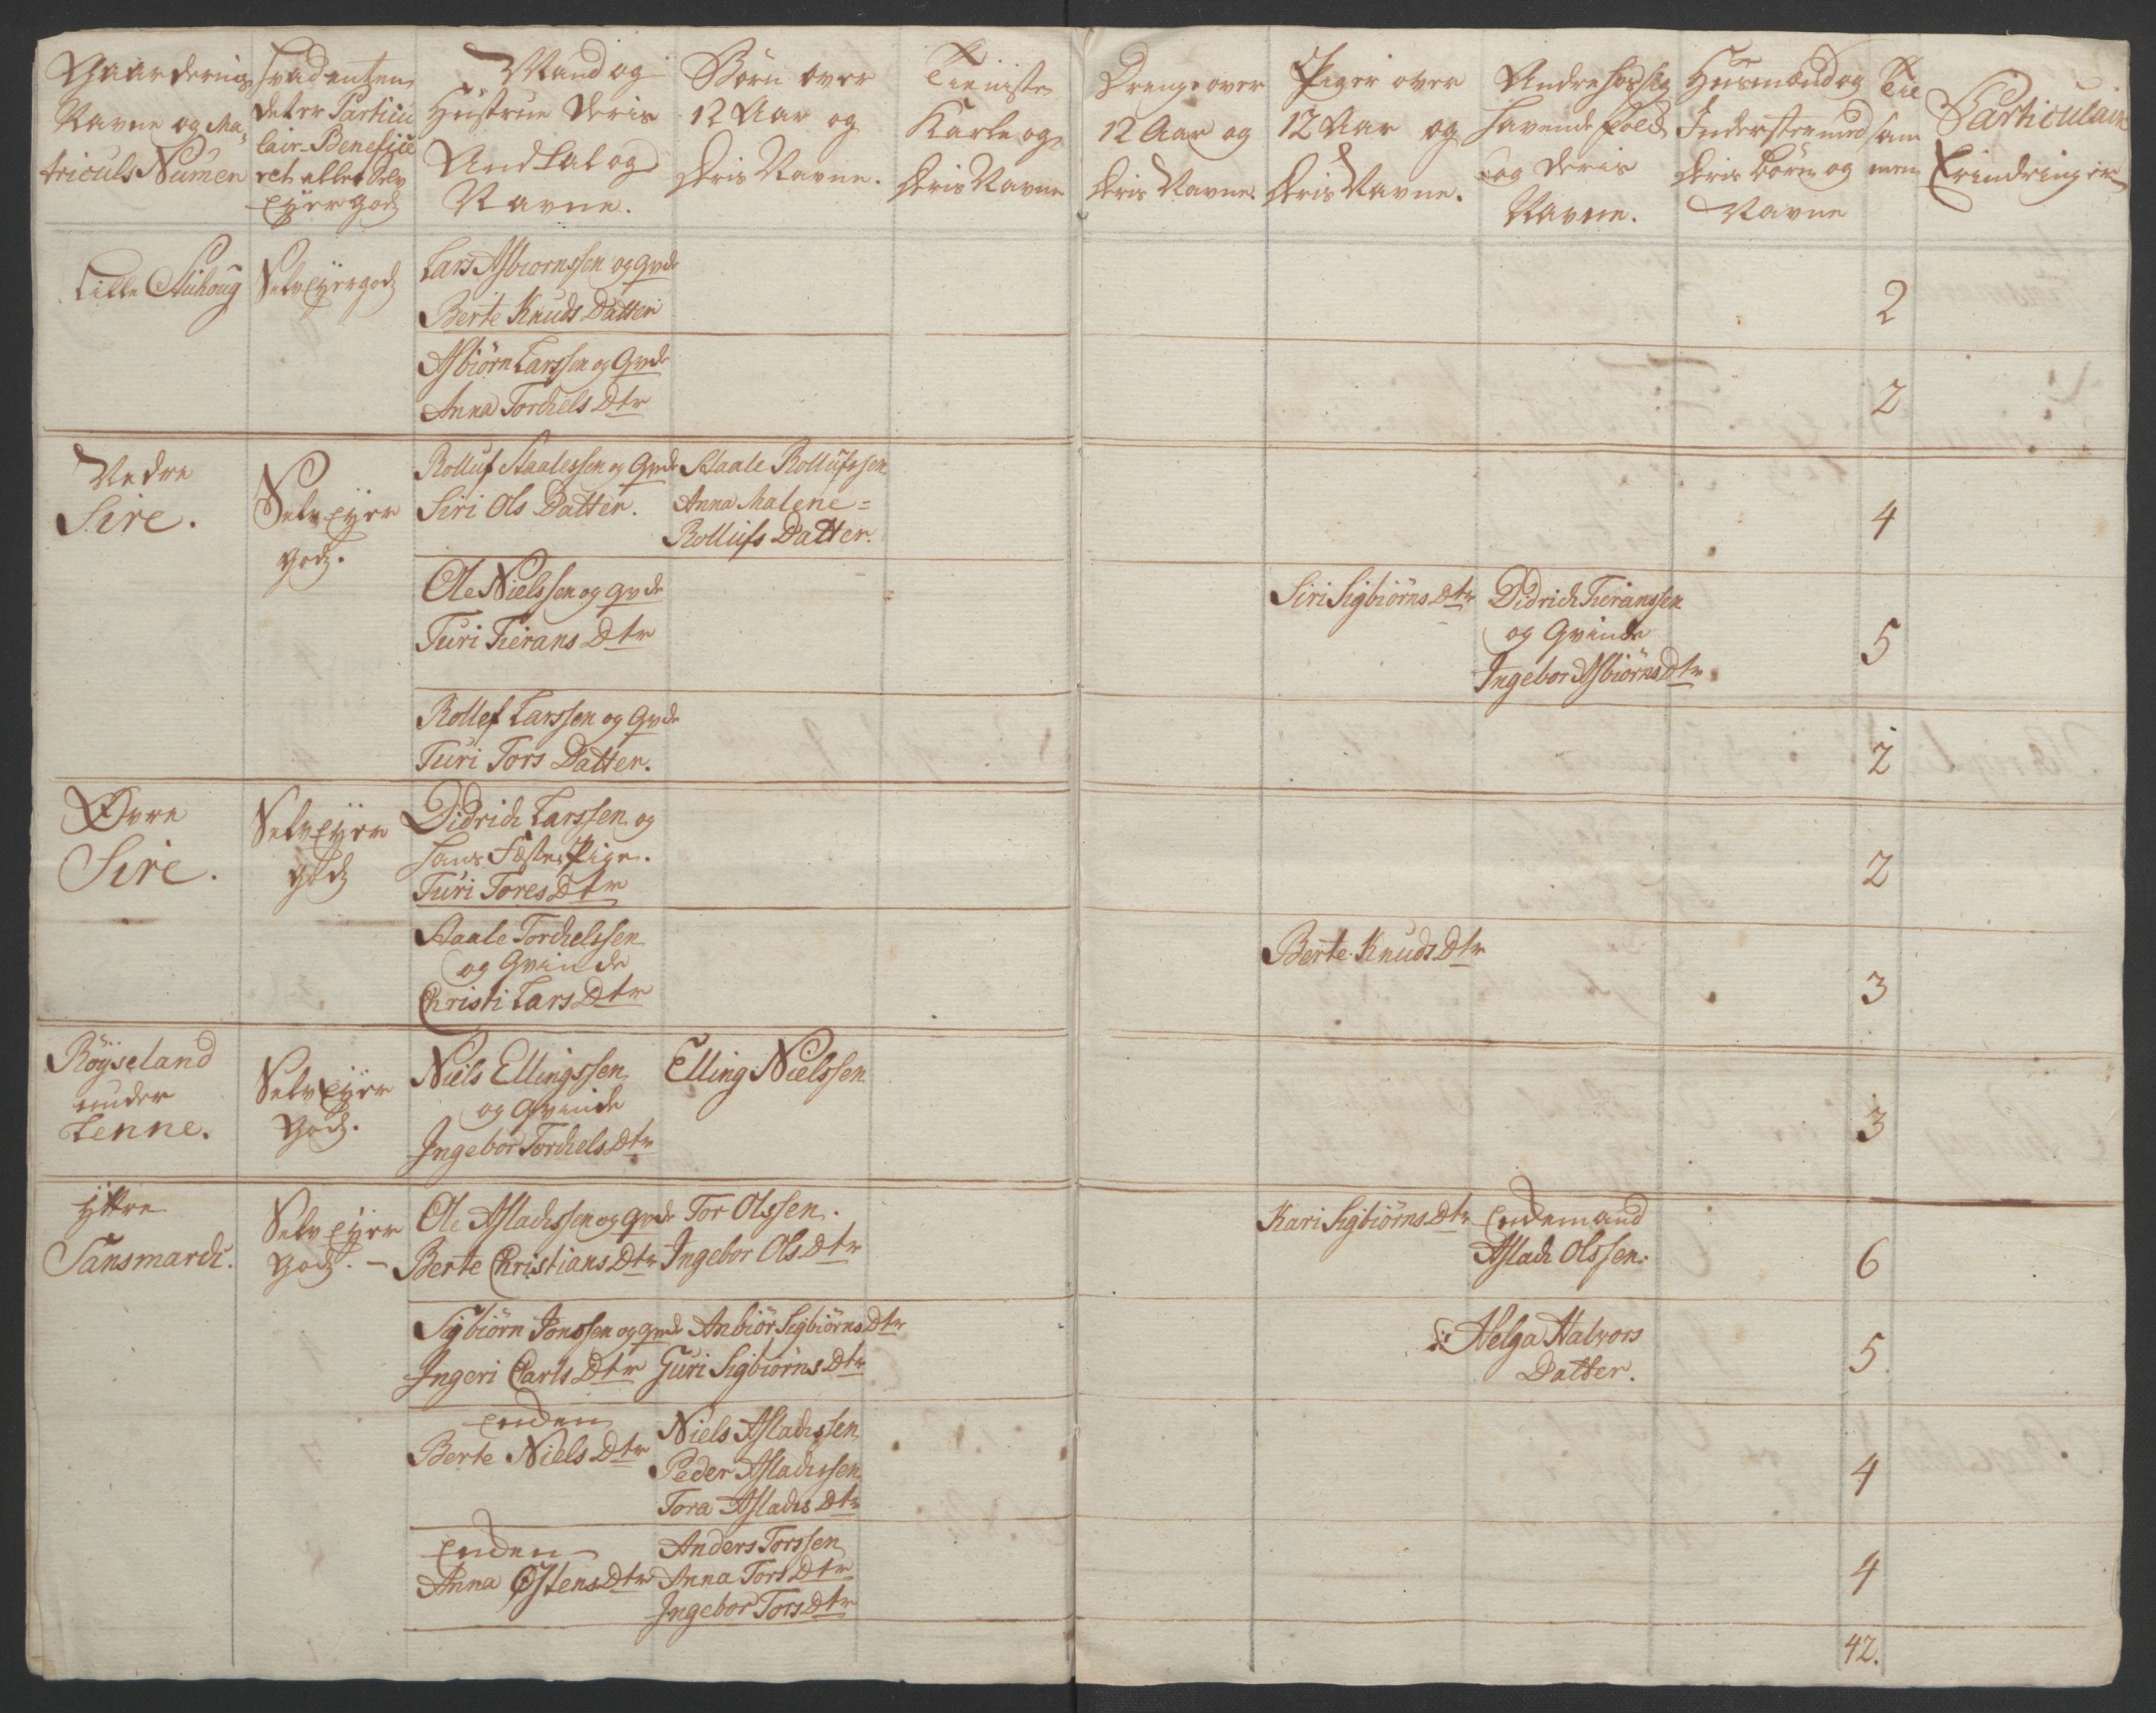 Gaardernis
Navne og Ma-
triculs Numer
hvad enten
det er Particu
lair Benefice
ret eller Selv
Eyer godz
Mand og
Hustrue deris
Andtal og
Navne.
Børn over
12 Aar og
deris Navne.
Tieniste
Karle og
deris Navne
Drenge over
12 Aar og
deris Navne.
Piger over
12 Aar og
deris Navne.
Andre hos sig
havende Folck
og deris
Navne.
Husmænd og
Inderster med
deris Børn og
Navne
Til
sam
men
Particulair
Erindringer
Lille Auhoug
Selv Eyergodz
Lars Asbiornssen og qvde
Berte Knuds Datter
2
Asbiörn Larssen og Qvde
Anna Torchels Dtr
2
Nedre
Sire.
Selv Eyer
godz.
Rolluf Staalessen og Qvde
Siri Ols Datter.
Staale Rollufssen
Anna Malene=
Rollufs Datter.
4
Ole Nielssen og qvde
Turi Tierans Dtr
Siri Sigbiörns Dtr
Didrich Tieranssen
og Qvinde
Ingebor Asbiörns Dtr
5
Rollef Larssen og Qvde
Turi Tors Datter.
2
Øvre
Sire.
Selv Eyer
godz
Didrich Larssen og
hans Fæste Pige.
Turi Tores Dtr
2
Staale Torchelssen
og Qvinde
Christi Lars Dtr
Berte Knuds Dtr
3
Röyseland
under
Lenne.
Selv Eyer
Godz.
Niels Ellingssen
og Qvinde
Ingebor Torchels Dtr
Elling Nielssen
3
Yttre
Tansmarch.
Selv Eyer
godz. –
Ole Aslachssen og qvde
Berte Christians Dtr
Tor Olssen.
Ingebor Ols Dtr
Kari Sigbiörns Dtr
Enckemand
Aslach Olssen.
6
Sigbiörn Jonssen og qvde
Ingeri Carls Dtr
Anbiör Sigbiörns Dtr
Guri Sigbiörns Dtr
Helga Halvors
Datter.
5
Encken
Berte Niels Dtr
Niels Aslachssen
Peder Aslachssen
Tora Aslachs Dtr
4
Encken
Anna Østens Dtr
Anders Torssen
Anna Tors Dtr
Ingebor Tors Dtr
4
42.